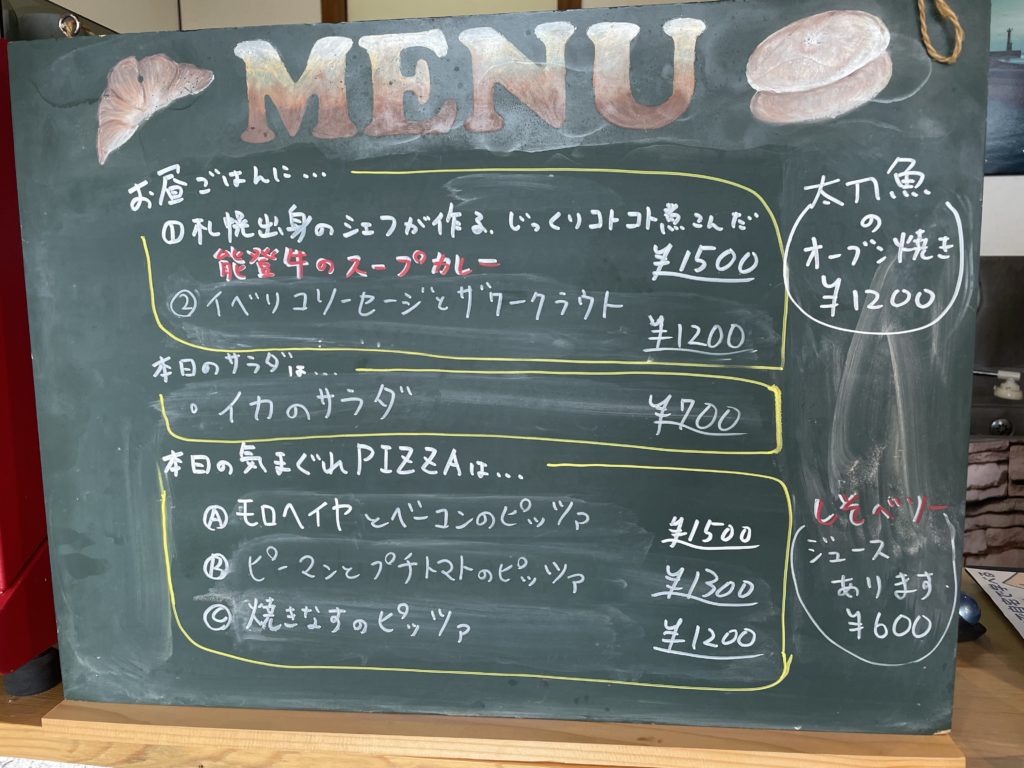 MENU
お昼ごはんに…
①札幌出身のシェフが作る、じっくりコトコト煮こんだ
能登牛のスープカレー ¥1500
②イベリコソーセージとザワークラウト
¥1200
本日のサラダは…
・イカのサラダ ¥700
本日の気まぐれPIZZAは…
Ⓐ モロヘイヤとベーコンのピッツァ ¥1500
Ⓑ ピーマンとプチトマトのピッツァ ¥1300
Ⓒ 焼きなすのピッツァ ¥1200
太刀魚
の
オーブン焼き
¥1200
しそベリー
ジュース
あります.
¥600